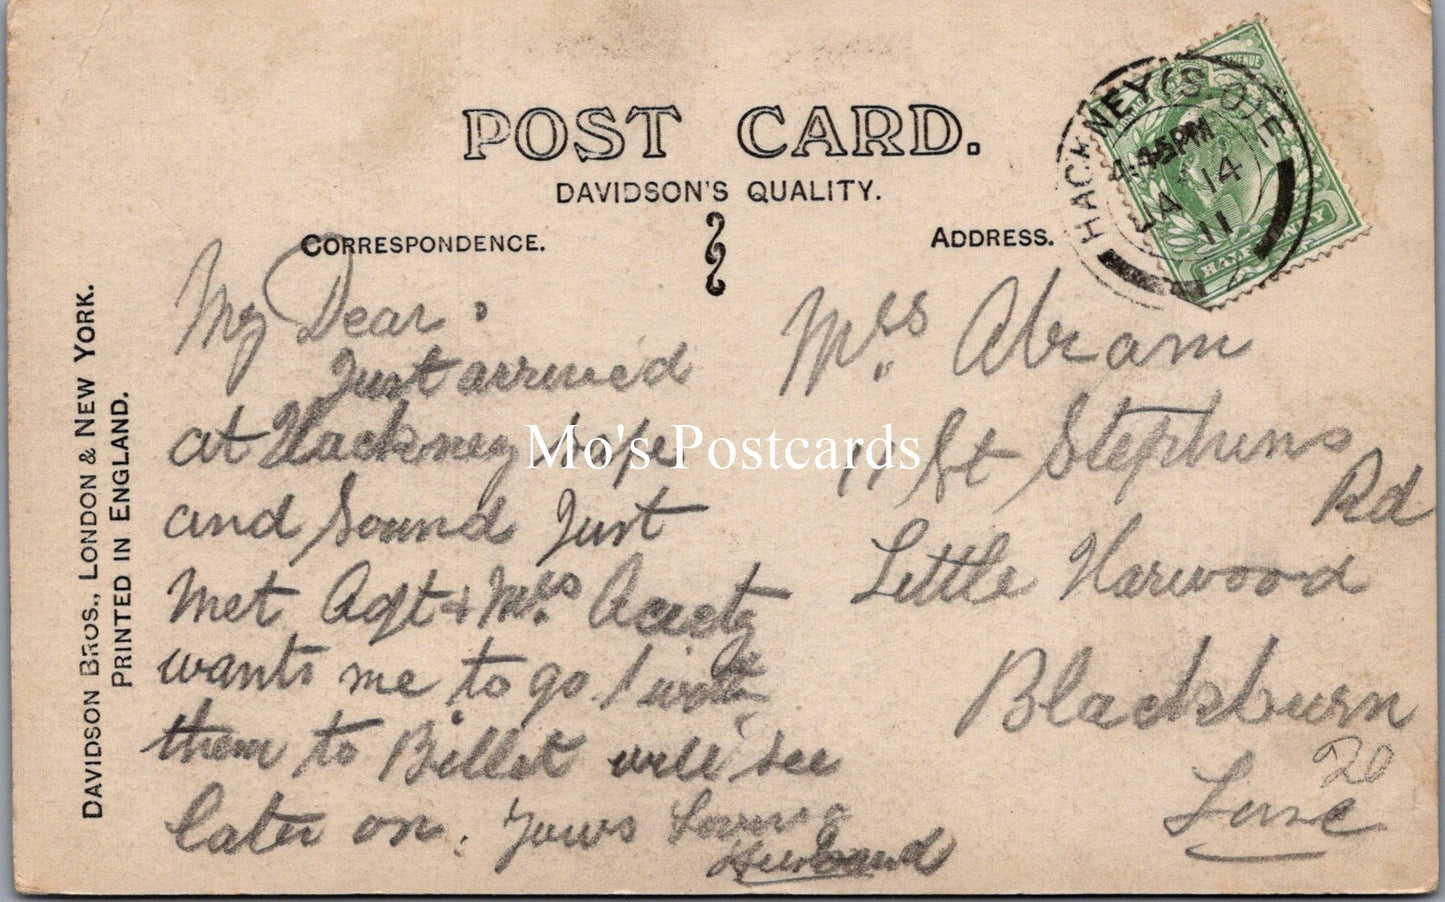 POST CARD.
DAVIDSON'S QUALITY.
CORRESPONDENCE.
ADDRESS.
DAVIDSON BROS., LONDON & NEW YORK.
PRINTED IN ENGLAND.
HACKNEY (S.O) E
4.45PM
JA 14
11
HALFPENNY
My Dear.
Just arrived
at Hackney safe
and Sound Just
met Adjt & Mrs
wants me to go with
them to Billet will see
later on. Yours Loving
Husband
Mrs Abram
St Stephens
Rd
Little Harwood
Blackburn
Lanc
20
Mo's Postcards